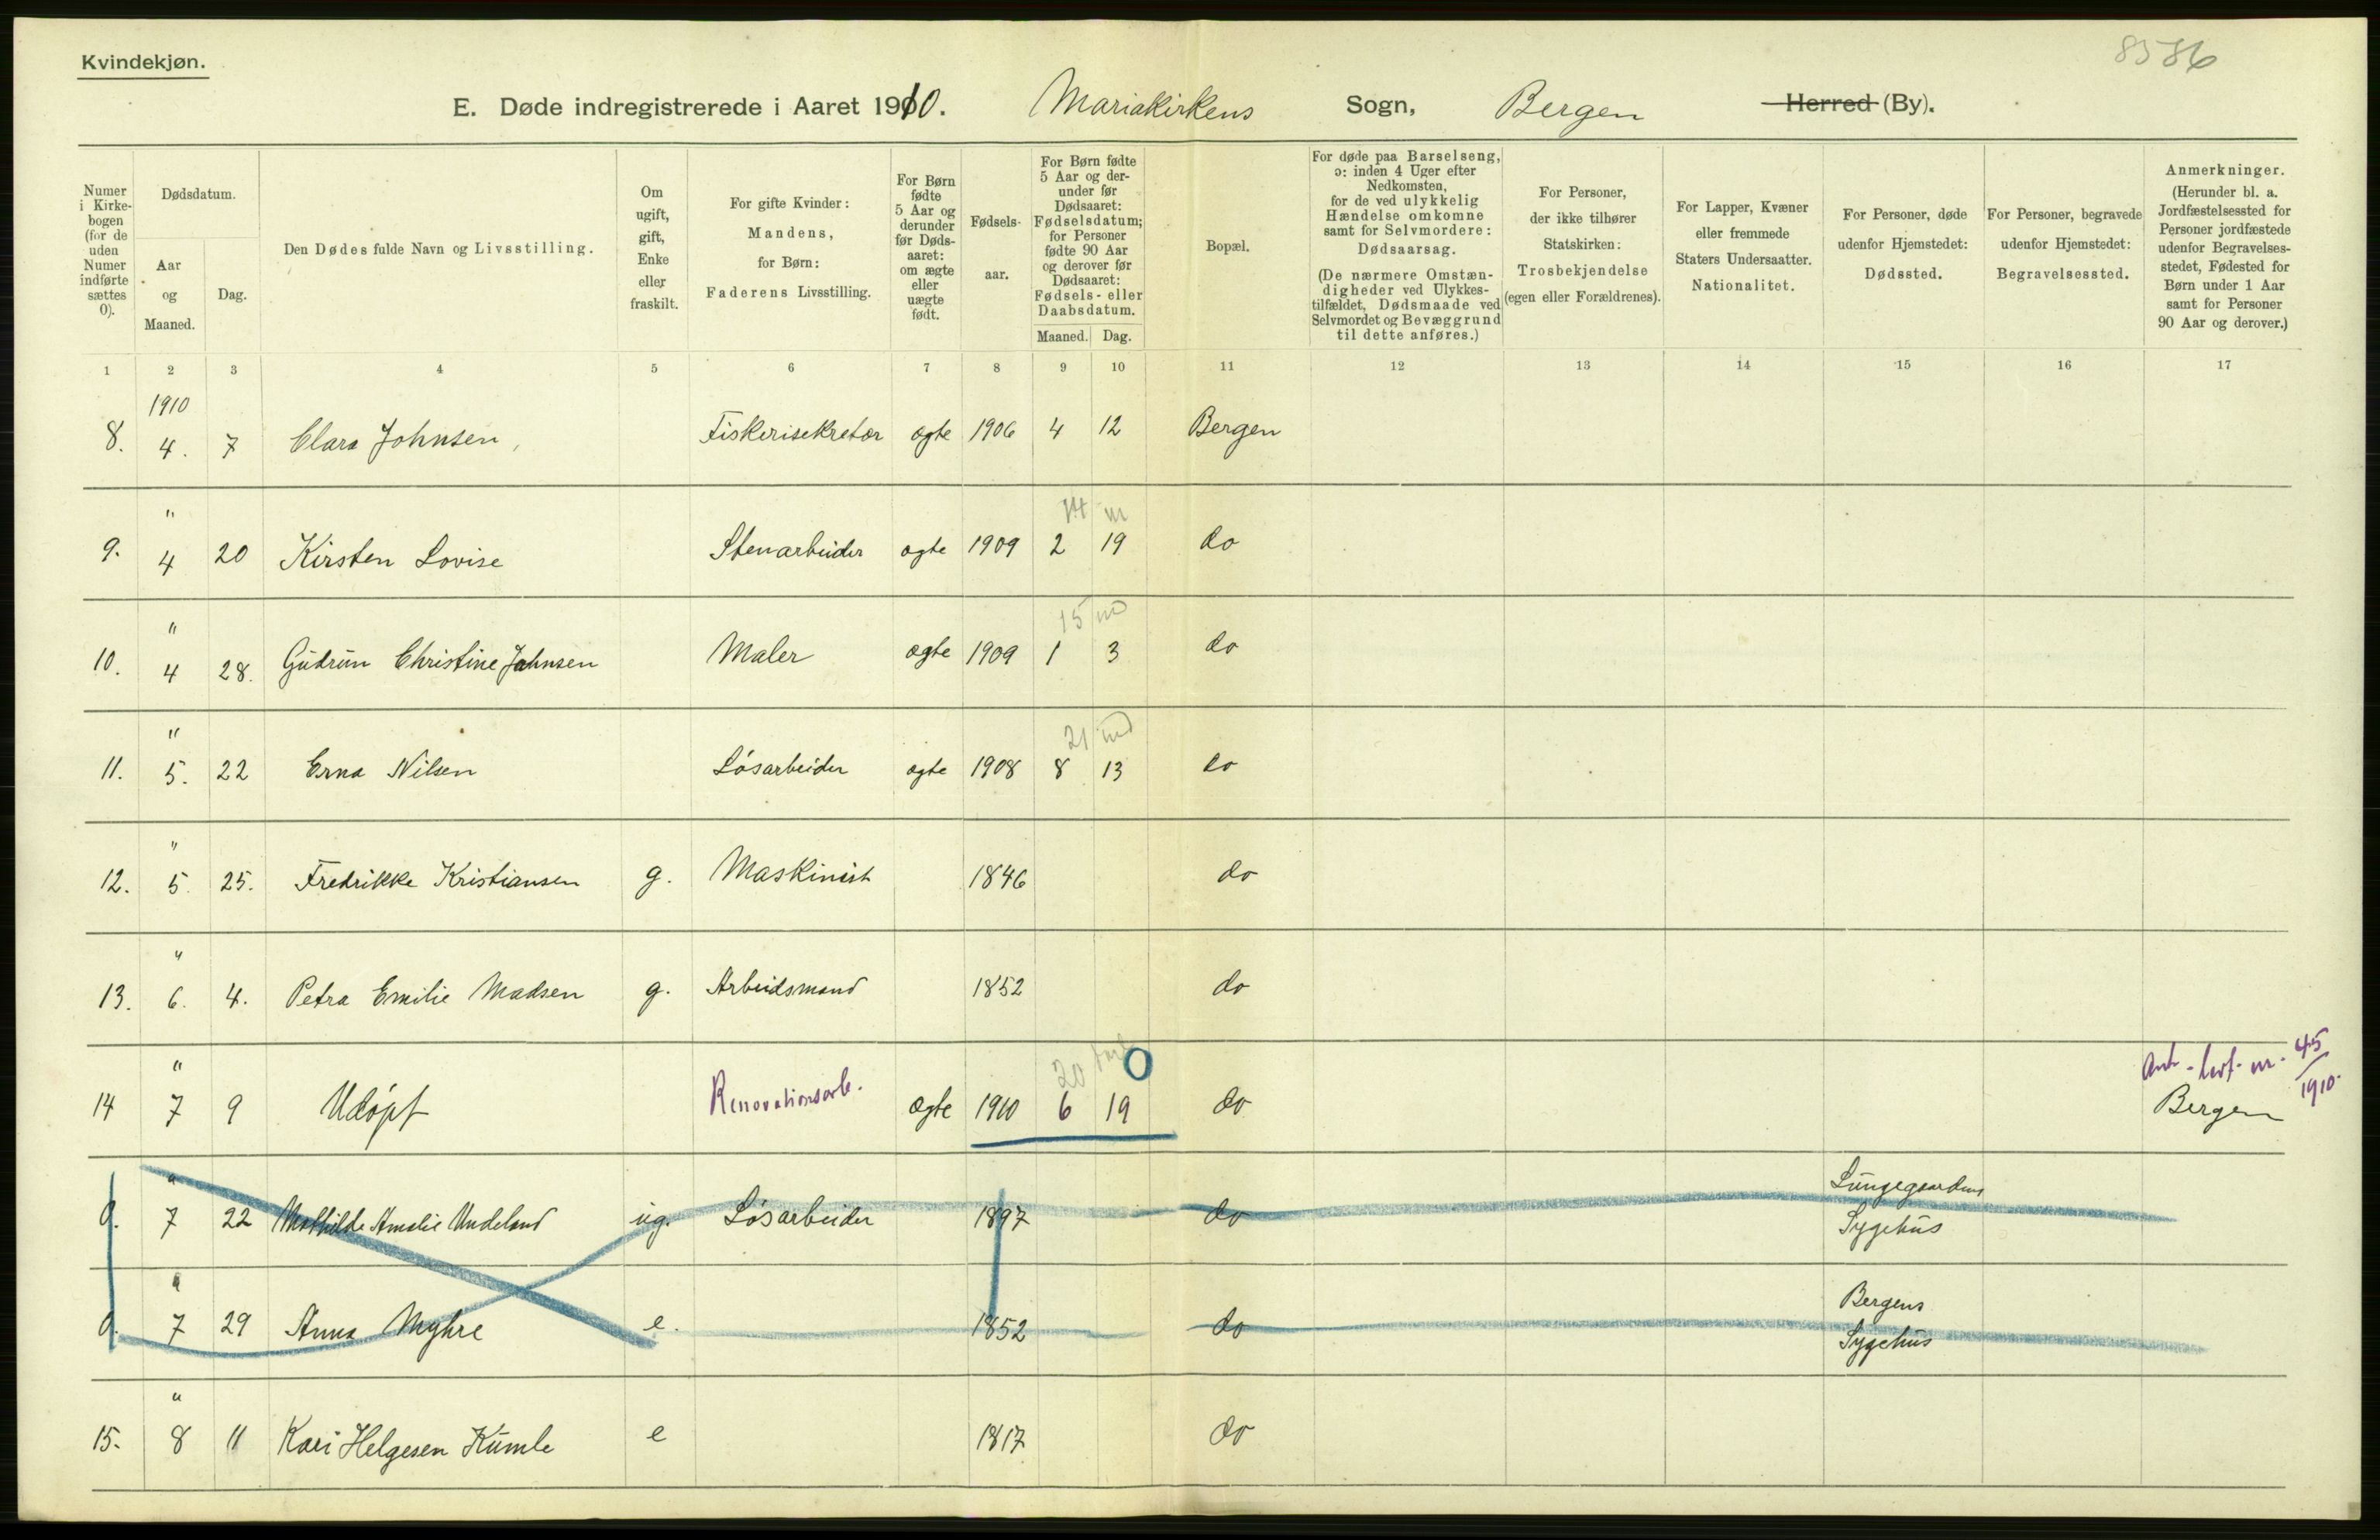 Kvindekjøn.
8586
E. Døde indregistrerede i Aaret 1910. Mariakirkens Sogn, Bergen Herred (By).
Numer i Kirke-bogen (for de uden Numer indførte sættes 0).
Dødsdatum.
Aar og Maaned.
Dag.
Den Dødes fulde Navn og Livsstilling.
Om ugift, gift, Enke eller fraskilt.
For gifte Kvinder: Mandens, for Børn: Faderens Livsstilling.
For Børn fødte 5 Aar og derunder før Døds-aaret: om ægte eller uægte født.
Fødsels-aar.
For Børn fødte 5 Aar og der-under før Dødsaaret: Fødselsdatum; for Personer fødte 90 Aar og derover før Dødsaaret: Fødsels- eller Daabsdatum.
Maaned. Dag.
Bopæl.
For døde paa Barselseng, ɔ: inden 4 Uger efter Nedkomsten, for de ved ulykkelig Hændelse omkomne samt for Selvmordere: Dødsaarsag.
(De nærmere Omstæn-digheder ved Ulykkes-tilfældet, Dødsmaade ved Selvmordet og Bevæggrund til dette anføres.)
For Personer, der ikke tilhører Statskirken: Trosbekjendelse (egen eller Forældrenes).
For Lapper, Kvæner eller fremmede Staters Undersaatter. Nationalitet.
For Personer, døde udenfor Hjemstedet: Dødssted.
For Personer, begravede udenfor Hjemstedet: Begravelsessted.
Anmerkninger.
(Herunder bl. a. Jordfæstelsessted for Personer jordfæstede udenfor Begravelses-stedet, Fødested for Børn under 1 Aar samt for Personer 90 Aar og derover.)
1 2 3 4 5 6 7 8 9 10 11 12 13 14 15 16 17
1910
8. 4. 7 Clara Johnsen, Fiskerisekretær ægte 1906 4 12 Bergen
" 14 m
9. 4 20 Kirsten Lovise Stenarbeider ægte 1909 2 19 do
" 15 md
10. 4 28. Gudrun Christine Johnsen Maler ægte 1909 1 3 do
" 21 md
11. 5. 22 Erna Nilsen Løsarbeider ægte 1908 8 13 do
"
12. 5. 25. Fredrikke Kristiansen g. Maskinist 1846 do
"
13. 6. 4. Petra Emilie Madsen g. Arbeidsmand 1852 do
" 20 0 45/1910.
14 7 9 Udøpt Renovationsarb. ægte 1910 6 19 do Bergen
" Lungegaardens
0. 7 22 Mathilde Amalie Undeland ug. Løsarbeider 1897 do Sygehus
" Bergens
0. 7 29 Anna Myhre e. 1852 do Sygehus
"
15. 8 11 Kari Helgesen Kumle e 1817 do